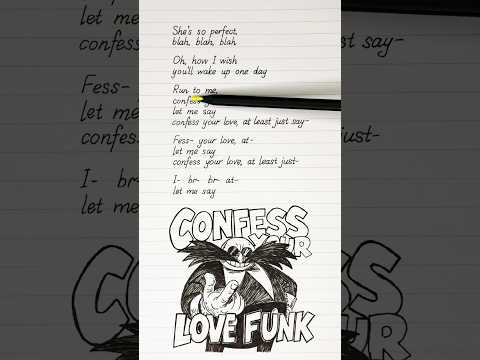 She's so perfect,
blah, blah, blah
Oh, how I wish
you'll wake up one day
Run to me,
confess
let me say
confess your love, at least just say-
Fess- your love, at-
let me say
confess your love, at least just-
I- br- br- at-
let me say
CONFESS
YOUR
LOVE FUNK